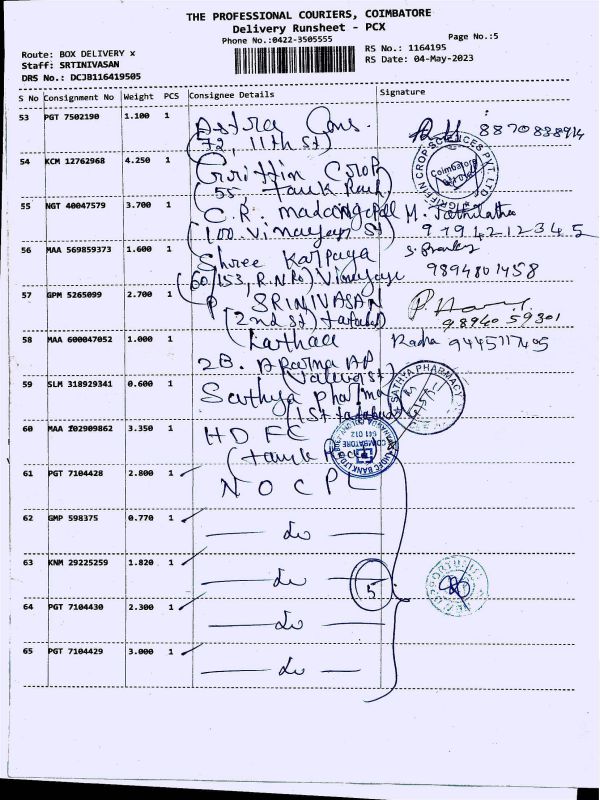 THE PROFESSIONAL COURIERS, COIMBATORE
Delivery Runsheet - PCX
Phone No.:0422-3505555
Page No.:5
Route: BOX DELIVERY x
Staff: SRTINIVASAN
DRS No.: DCJB116419505
RS No.: 1164195
RS Date: 04-May-2023
S No Consignment No Weight PCS Consignee Details Signature
53 PGT 7502190 1.100 1 Astra Cons. 8870838914
(72, 11th St)
54 KCM 12762968 4.250 1 Griffin Crop
(55, Tank Road)
GRIFFIN CROP SCIENCES PVT. LTD. Coimbatore
55 NGT 40047579 3.700 1 C.R. madangopal M.
(100. Vinayaga St) 9794212345
56 MAA 569859373 1.600 1 Shree Karpaga
(60/153, R.N.Ro) Vinayage 9894801458
57 GPM 5265099 2.700 1 P. SRINIVASAN
(2nd St) tatabad 9894059301
58 MAA 600047052 1.000 1 Karthaa Radha 9445117405
2B. Dharma AP
59 SLM 318929341 0.600 1 Sathya Pharma
(1st tatabad)
SATHYA PHARMACY
60 MAA 102909862 3.350 1 HDFC
HDFC BANK LTD COIMBATORE 641 012
61 PGT 7104428 2.800 1 NOCPL
62 GMP 598375 0.770 1 — do —
63 KNM 29225259 1.820 1 — do — 5
64 PGT 7104430 2.300 1 — do —
65 PGT 7104429 3.000 1 — do —